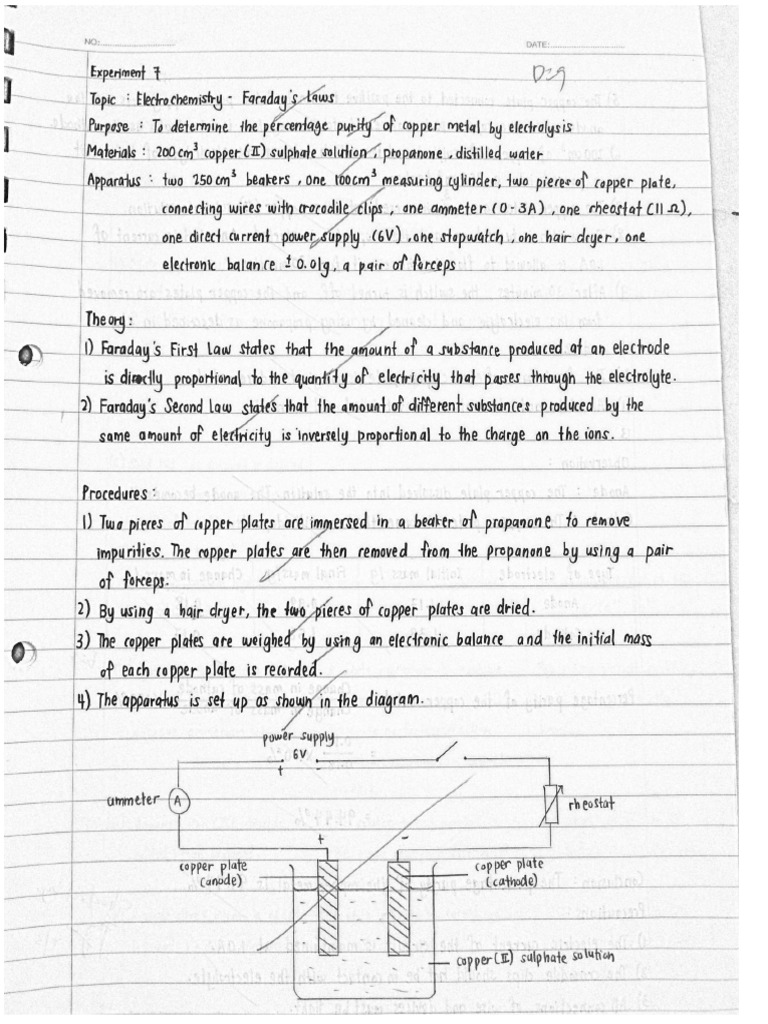 NO:
DATE:
Experiment 7
Topic : Electrochemistry - Faraday's Laws
Purpose : To determine the percentage purity of copper metal by electrolysis
Materials : 200 cm³ copper (II) sulphate solution, propanone, distilled water
Apparatus : two 250 cm³ beakers, one 100 cm³ measuring cylinder, two pieces of copper plate,
connecting wires with crocodile clips, one ammeter (0-3A), one rheostat (11 Ω),
one direct current power supply (6V), one stopwatch, one hair dryer, one
electronic balance ± 0.01g, a pair of forceps
Theory:
1) Faraday's First Law states that the amount of a substance produced at an electrode
is directly proportional to the quantity of electricity that passes through the electrolyte.
2) Faraday's Second Law states that the amount of different substances produced by the
same amount of electricity is inversely proportional to the charge on the ions.
Procedures:
1) Two pieces of copper plates are immersed in a beaker of propanone to remove
impurities. The copper plates are then removed from the propanone by using a pair
of forceps.
2) By using a hair dryer, the two pieces of copper plates are dried.
3) The copper plates are weighed by using an electronic balance and the initial mass
of each copper plate is recorded.
4) The apparatus is set up as shown in the diagram.
power supply
6V
+ -
ammeter A
rheostat
+ -
copper plate
(anode)
copper plate
(cathode)
copper (II) sulphate solution